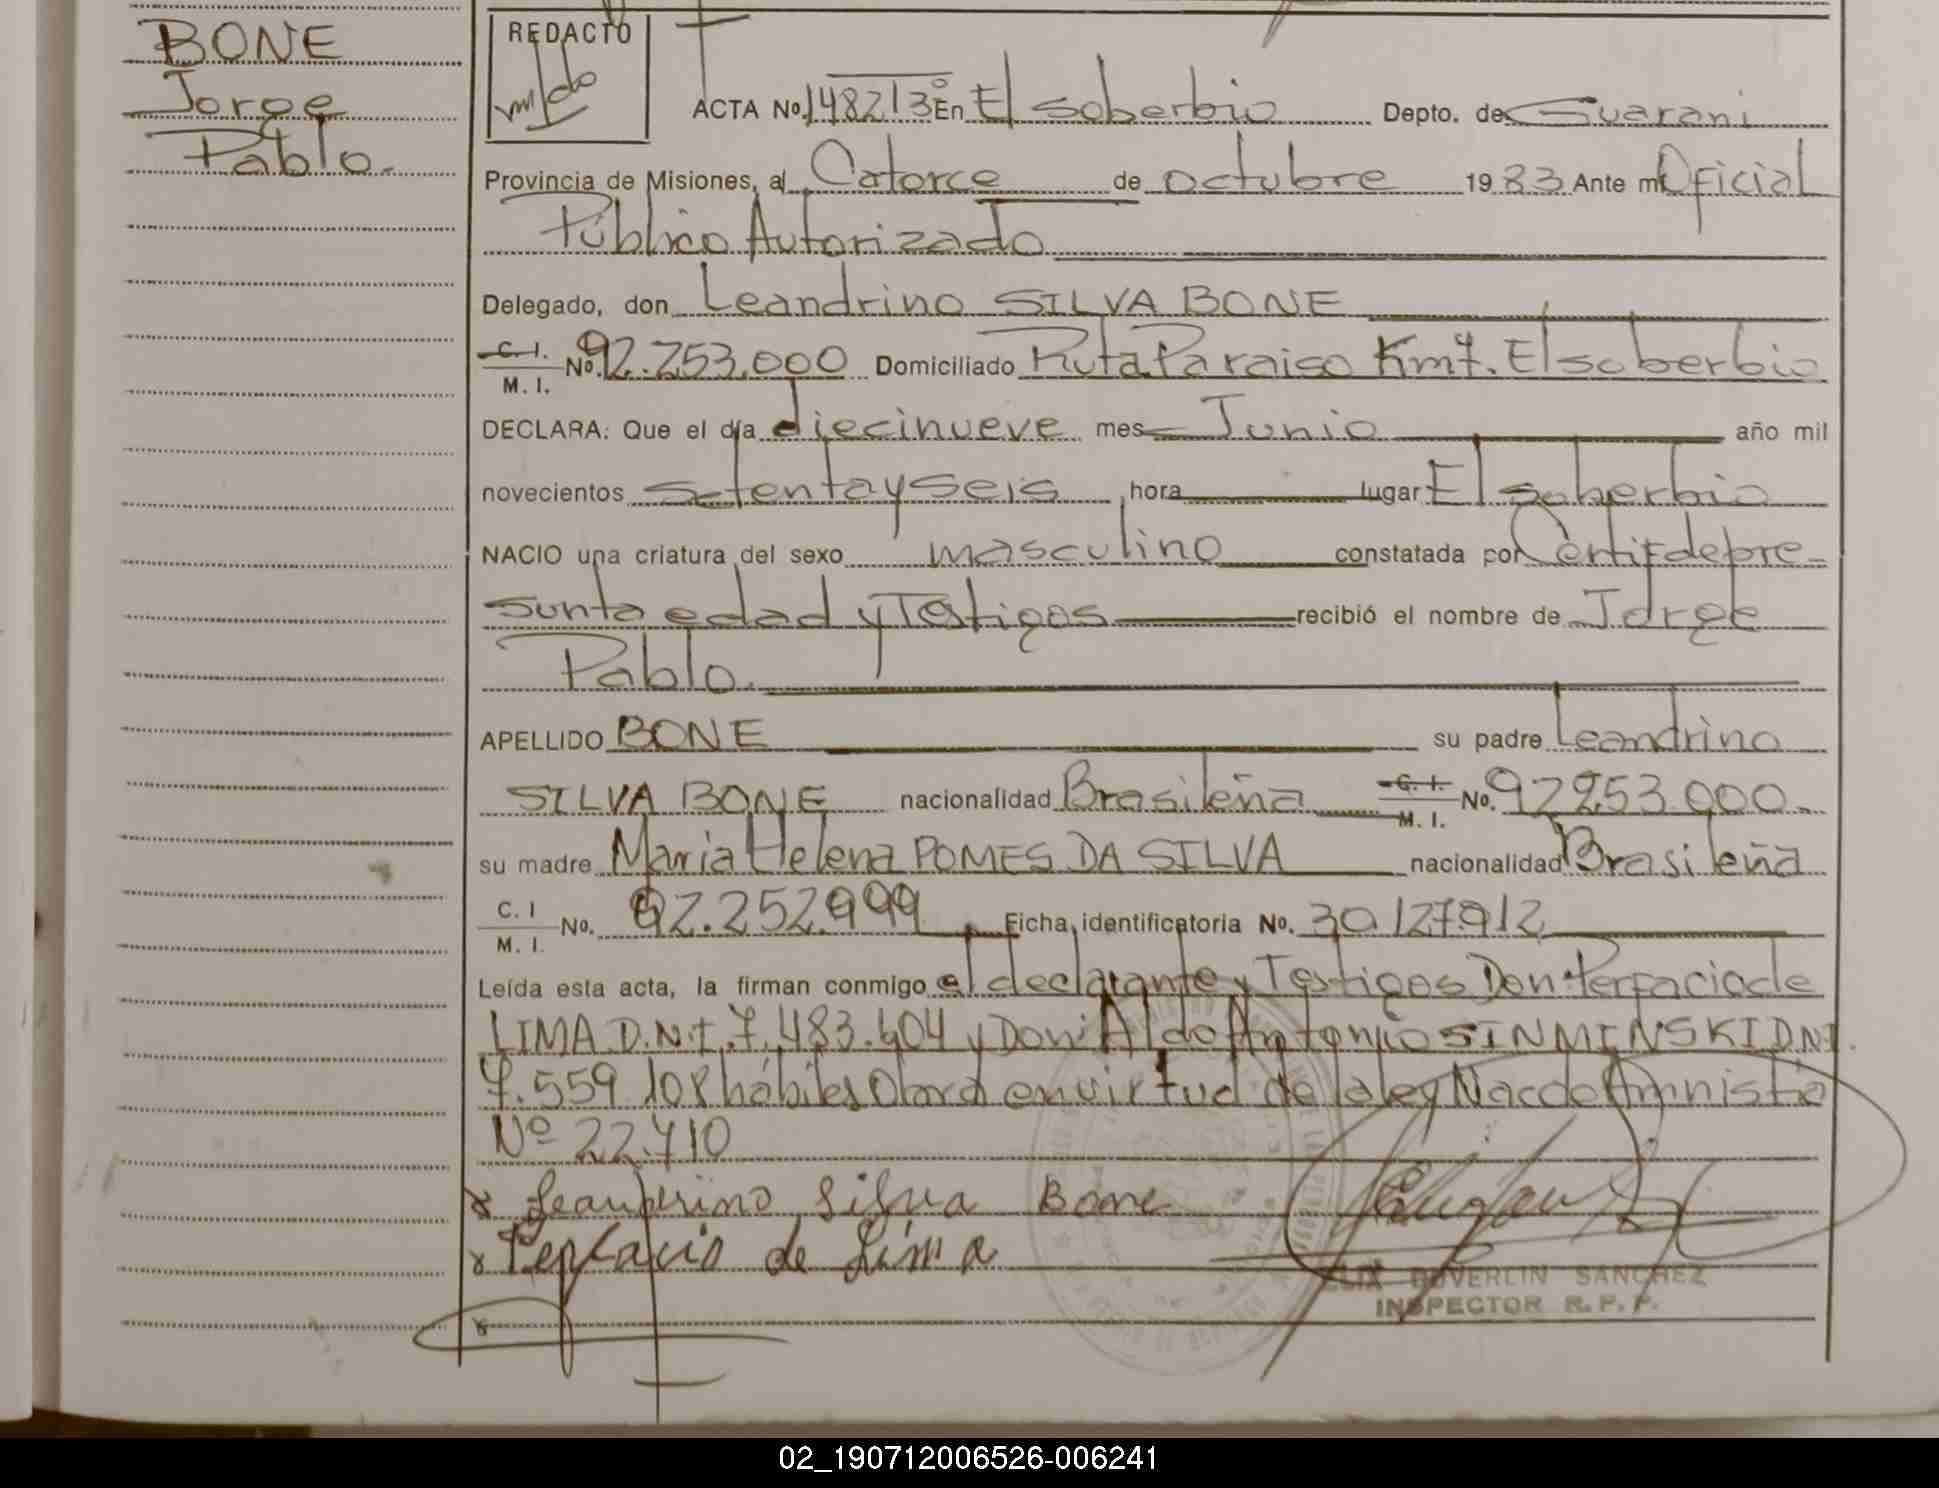 BONE
Jorge
Pablo.
REDACTO
ACTA Nº 148213º En El soberbio Depto. de Guarani
Provincia de Misiones, al Catorce de octubre 1983 Ante mi Oficial
Público Autorizado
Delegado, don Leandrino SILVA BONE
C. I. / M. I. Nº. 92.253.000 Domiciliado Ruta Paraiso Km 7. El soberbio
DECLARA: Que el día diecinueve mes Junio año mil
novecientos setenta y seis hora lugar El soberbio
NACIO una criatura del sexo masculino constatada por Certif de pre-
sunta edad y Testigos recibió el nombre de Jorge
Pablo.
APELLIDO BONE su padre Leandrino
SILVA BONE nacionalidad Brasileña C. I. / M. I. Nº. 92253.000.
su madre Maria Helena POMES DA SILVA nacionalidad Brasileña
C. I / M. I. Nº. 92.252.999 Ficha identificatoria Nº. 30.127.912
Leída esta acta, la firman conmigo el declarante y Testigos Don Perfacio de
LIMA D.N.I. 7.483.604 y Don Aldo Antonio SINMINSKI D.N.I.
7.559.108 hábiles Obrad en virtud de la ley Nac de Amnistia
Nº 22.410
x Leandrino Silva Bone
x Perfacio de Lima
x
FELIX DUVERLIN SANCHEZ
INSPECTOR R. P. P.
02_190712006526-006241